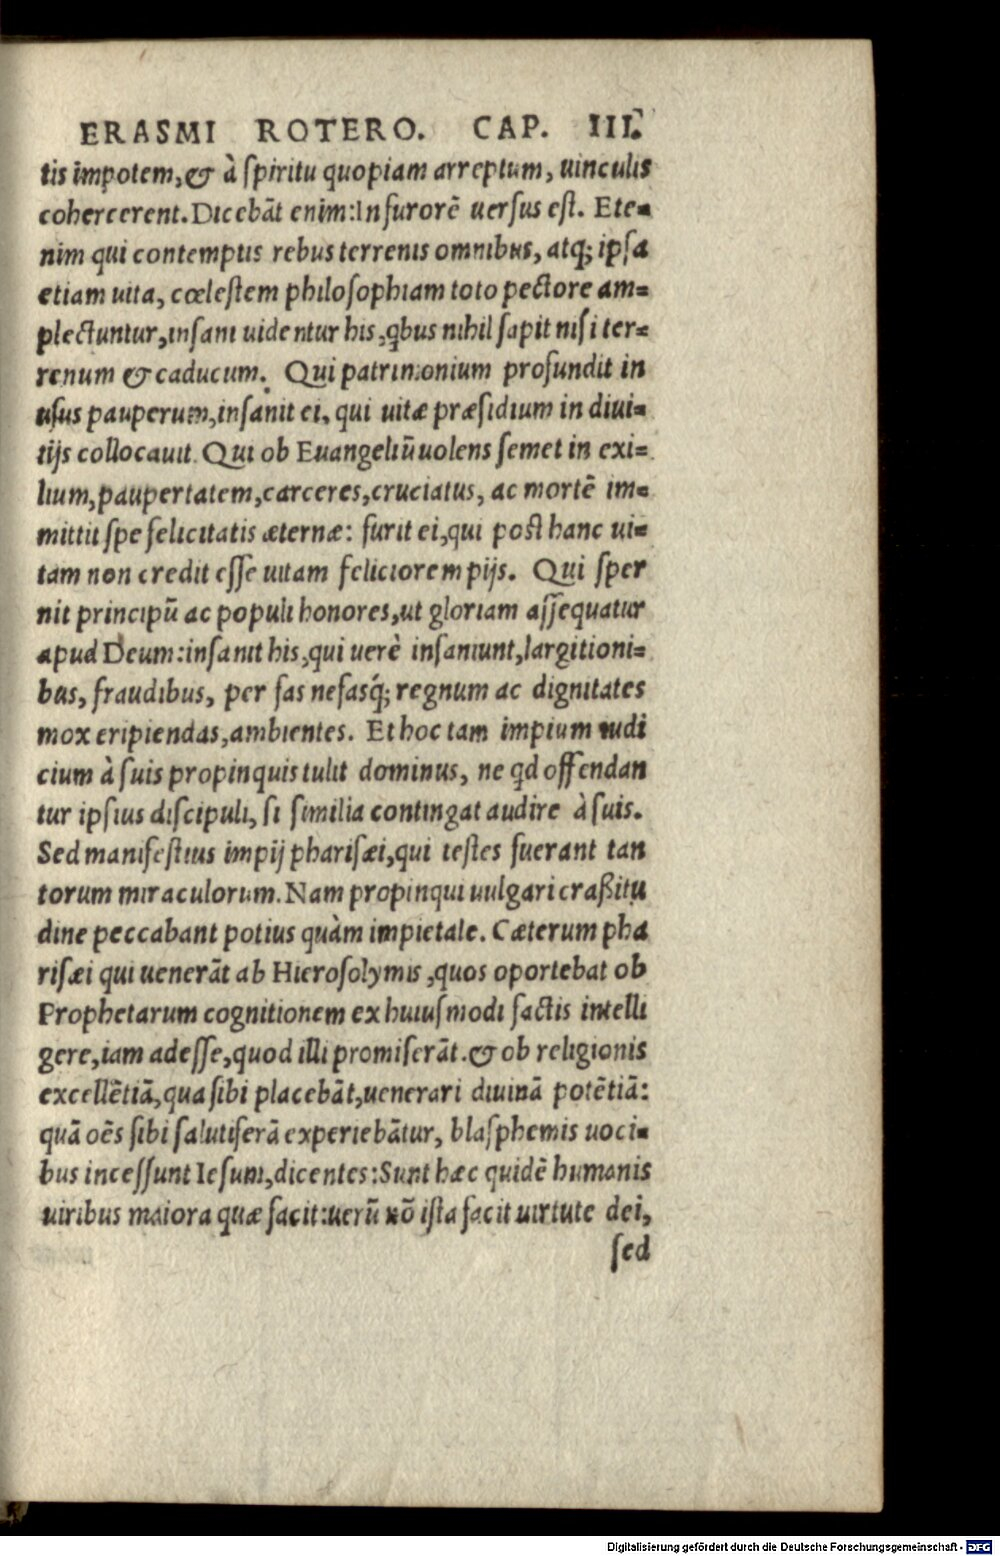 ERASMI ROTERO. CAP. III.
tis impotem,& à spiritu quopiam arreptum, uinculis
cohercerent. Dicebāt enim: In furorē uersus est. Ete=
nim qui contemptis rebus terrenis omnibus, atq; ipsa
etiam uita, cœlestem philosophiam toto pectore am=
plectuntur, insani uidentur his, qbus nihil sapit nisi ter=
renum & caducum. Qui patrimonium profundit in
usus pauperum, insanit ei, qui uitæ præsidium in diui=
tijs collocauit. Qui ob Euangeliū uolens semet in exi=
lium, paupertatem, carceres, cruciatus, ac mortē im=
mittit spe felicitatis æternæ: furit ei, qui post hanc ui=
tam non credit esse uitam feliciorem pijs. Qui sper
nit principū ac populi honores, ut gloriam assequatur
apud Deum: insanit his, qui uerè insaniunt, largitioni=
bus, fraudibus, per fas nefasq́; regnum ac dignitates
mox eripiendas, ambientes. Et hoc tam impium iudi
cium à suis propinquis tulit dominus, ne qd offendan
tur ipsius discipuli, si similia contingat audire à suis.
Sed manifestius impij pharisæi, qui testes fuerant tan
torum miraculorum. Nam propinqui uulgari craßitu
dine peccabant potius quàm impietate. Cæterum pha
risæi qui uenerāt ab Hierosolymis, quos oportebat ob
Prophetarum cognitionem ex huiusmodi factis intelli
gere, iam adesse, quod illi promiserāt. & ob religionis
excellētiā, qua sibi placebāt, uenerari diuinā potētiā:
quā oēs sibi salutiferā experiebātur, blasphemis uoci=
bus incessunt Iesum, dicentes: Sunt hæc quidē humanis
uiribus maiora quæ facit: uerū nō ista facit uirtute dei,
sed
Digitalisierung gefördert durch die Deutsche Forschungsgemeinschaft - DFG